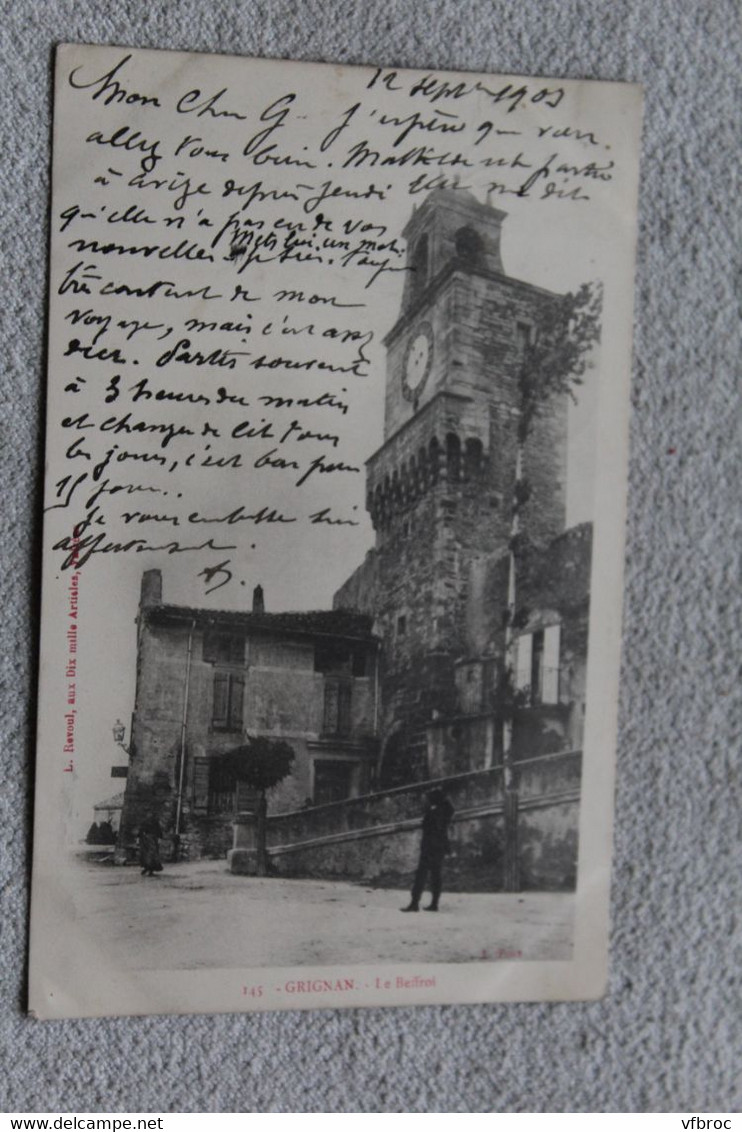 12 Septbre 1903
Mon Cher G. J'espère que vous
allez tous bien. Mathilde est partie
à depuis jeudi Elle me dit
qu'elle n'a pas eu de vos
nouvelles Mets lui un mot
Je suis
très content de mon
voyage, mais c'est assez
dur. Partis souvent
à 3 heures du matin
et changer de lit tous
les jours, c'est bon pour
15 jours..
Je vous embrasse bien
affectueusement.
L. Revoul, aux Dix mille Articles,
145 - GRIGNAN. - Le Beffroi
vfbroc